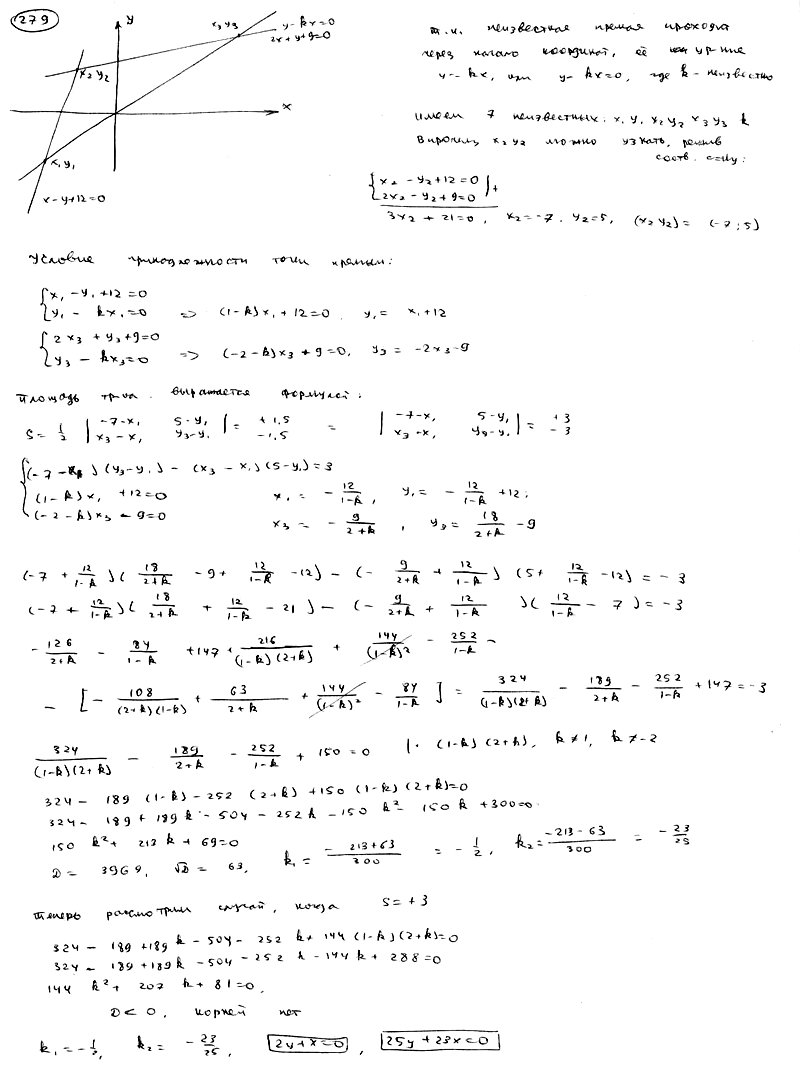 279
y
x₃ y₃
y-kx=0
2x+y+9=0
x₂ y₂
x
x₁ y₁
x-y+12=0
т.к. неизвестная прямая проходит
через начало координат, её ур-ние
y=kx, или y-kx=0, где k-неизвестно
имеем 7 неизвестных: x₁ y₁ x₂ y₂ x₃ y₃ k
Впрочем, x₂ y₂ можно узнать, решив
соотв. с-му:
x₂ - y₂ + 12 = 0 | +
2x₂ - y₂ + 9 = 0
3x₂ + 21 = 0, x₂ = -7, y₂ = 5, (x₂ y₂) = (-7; 5)
Условие принадлежности точки прямым:
x₁ - y₁ + 12 = 0
y₁ - kx₁ = 0 => (1-k)x₁ + 12 = 0, y₁ = x₁ + 12
2x₃ + y₃ + 9 = 0
y₃ - kx₃ = 0 => (-2-k)x₃ - 9 = 0, y₃ = -2x₃ - 9
Площадь тр-ка выражается формулой:
S = 1/2 | -7-x₁ 5-y₁ | = +1,5 = | -7-x₁ 5-y₁ | = +3
x₃-x₁ y₃-y₁ -1,5 x₃-x₁ y₃-y₁ -3
(-7-x₁)(y₃-y₁) - (x₃-x₁)(5-y₁) = 3
(1-k)x₁ + 12 = 0 x₁ = - 12/(1-k), y₁ = - 12/(1-k) + 12;
(-2-k)x₃ - 9 = 0 x₃ = - 9/(2+k), y₃ = 18/(2+k) - 9
(-7 + 12/(1-k))(18/(2+k) - 9 + 12/(1-k) - 12) - (- 9/(2+k) + 12/(1-k))(5 + 12/(1-k) - 12) = -3
(-7 + 12/(1-k))(18/(2+k) + 12/(1-k) - 21) - (- 9/(2+k) + 12/(1-k))(12/(1-k) - 7) = -3
- 126/(2+k) - 84/(1-k) + 147 + 216/((1-k)(2+k)) + 144/(1-k)² - 252/(1-k) -
- [- 108/((2+k)(1-k)) + 63/(2+k) + 144/(1-k)² - 84/(1-k)] = 324/((1-k)(2+k)) - 189/(2+k) - 252/(1-k) + 147 = -3
324/((1-k)(2+k)) - 189/(2+k) - 252/(1-k) + 150 = 0 | · (1-k)(2+k), k≠1, k≠-2
324 - 189(1-k) - 252(2+k) + 150(1-k)(2+k) = 0
324 - 189 + 189k - 504 - 252k - 150k² - 150k + 300 = 0
150k² + 213k + 69 = 0
D = 3969, √D = 63, k₁ = (-213+63)/300 = - 1/2, k₂ = (-213-63)/300 = - 23/25
Теперь рассмотрим случай, когда S = +3
324 - 189 + 189k - 504 - 252k + 144(1-k)(2+k) = 0
324 - 189 + 189k - 504 - 252k - 144k + 288 = 0
144k² + 207k + 81 = 0,
D < 0, корней нет
k₁ = - 1/2, k₂ = - 23/25, 2y+x=0, 25y+23x=0